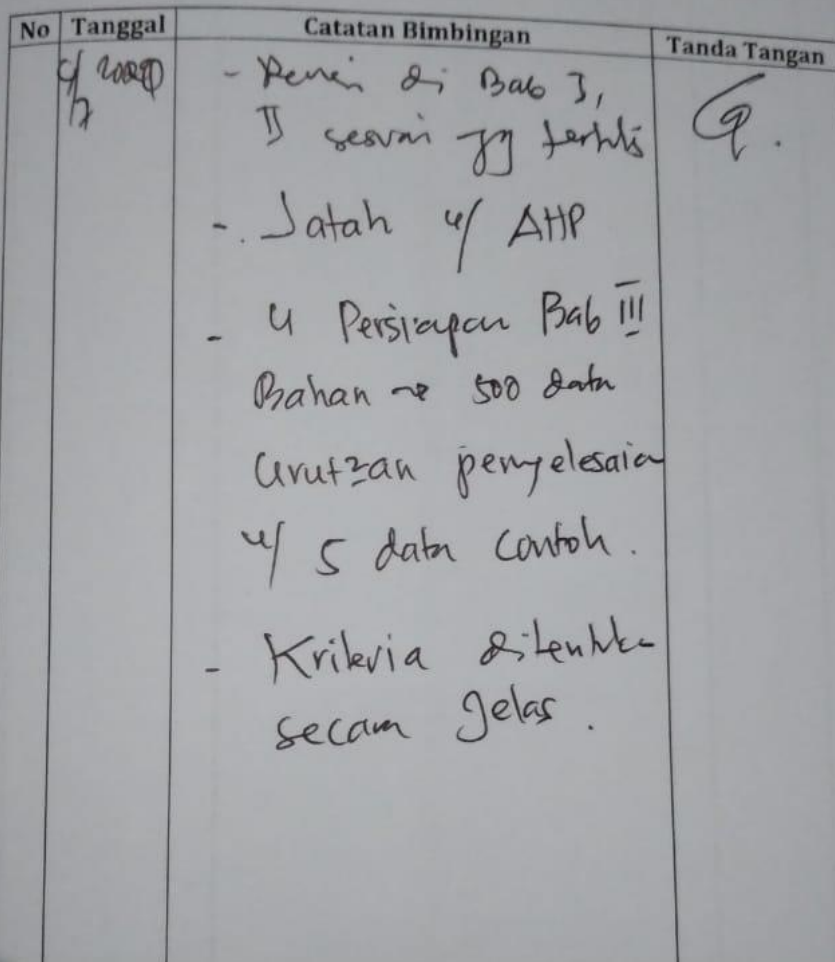 No Tanggal Catatan Bimbingan Tanda Tangan
- Revisi di Bab I,
II sesuai yg tertulis
- Jatah u/ AHP
- U Persiapan Bab III
Bahan → 500 data
Urut2an penyelesaian
u/ 5 data contoh.
- Kriteria ditentuka
secara jelas.